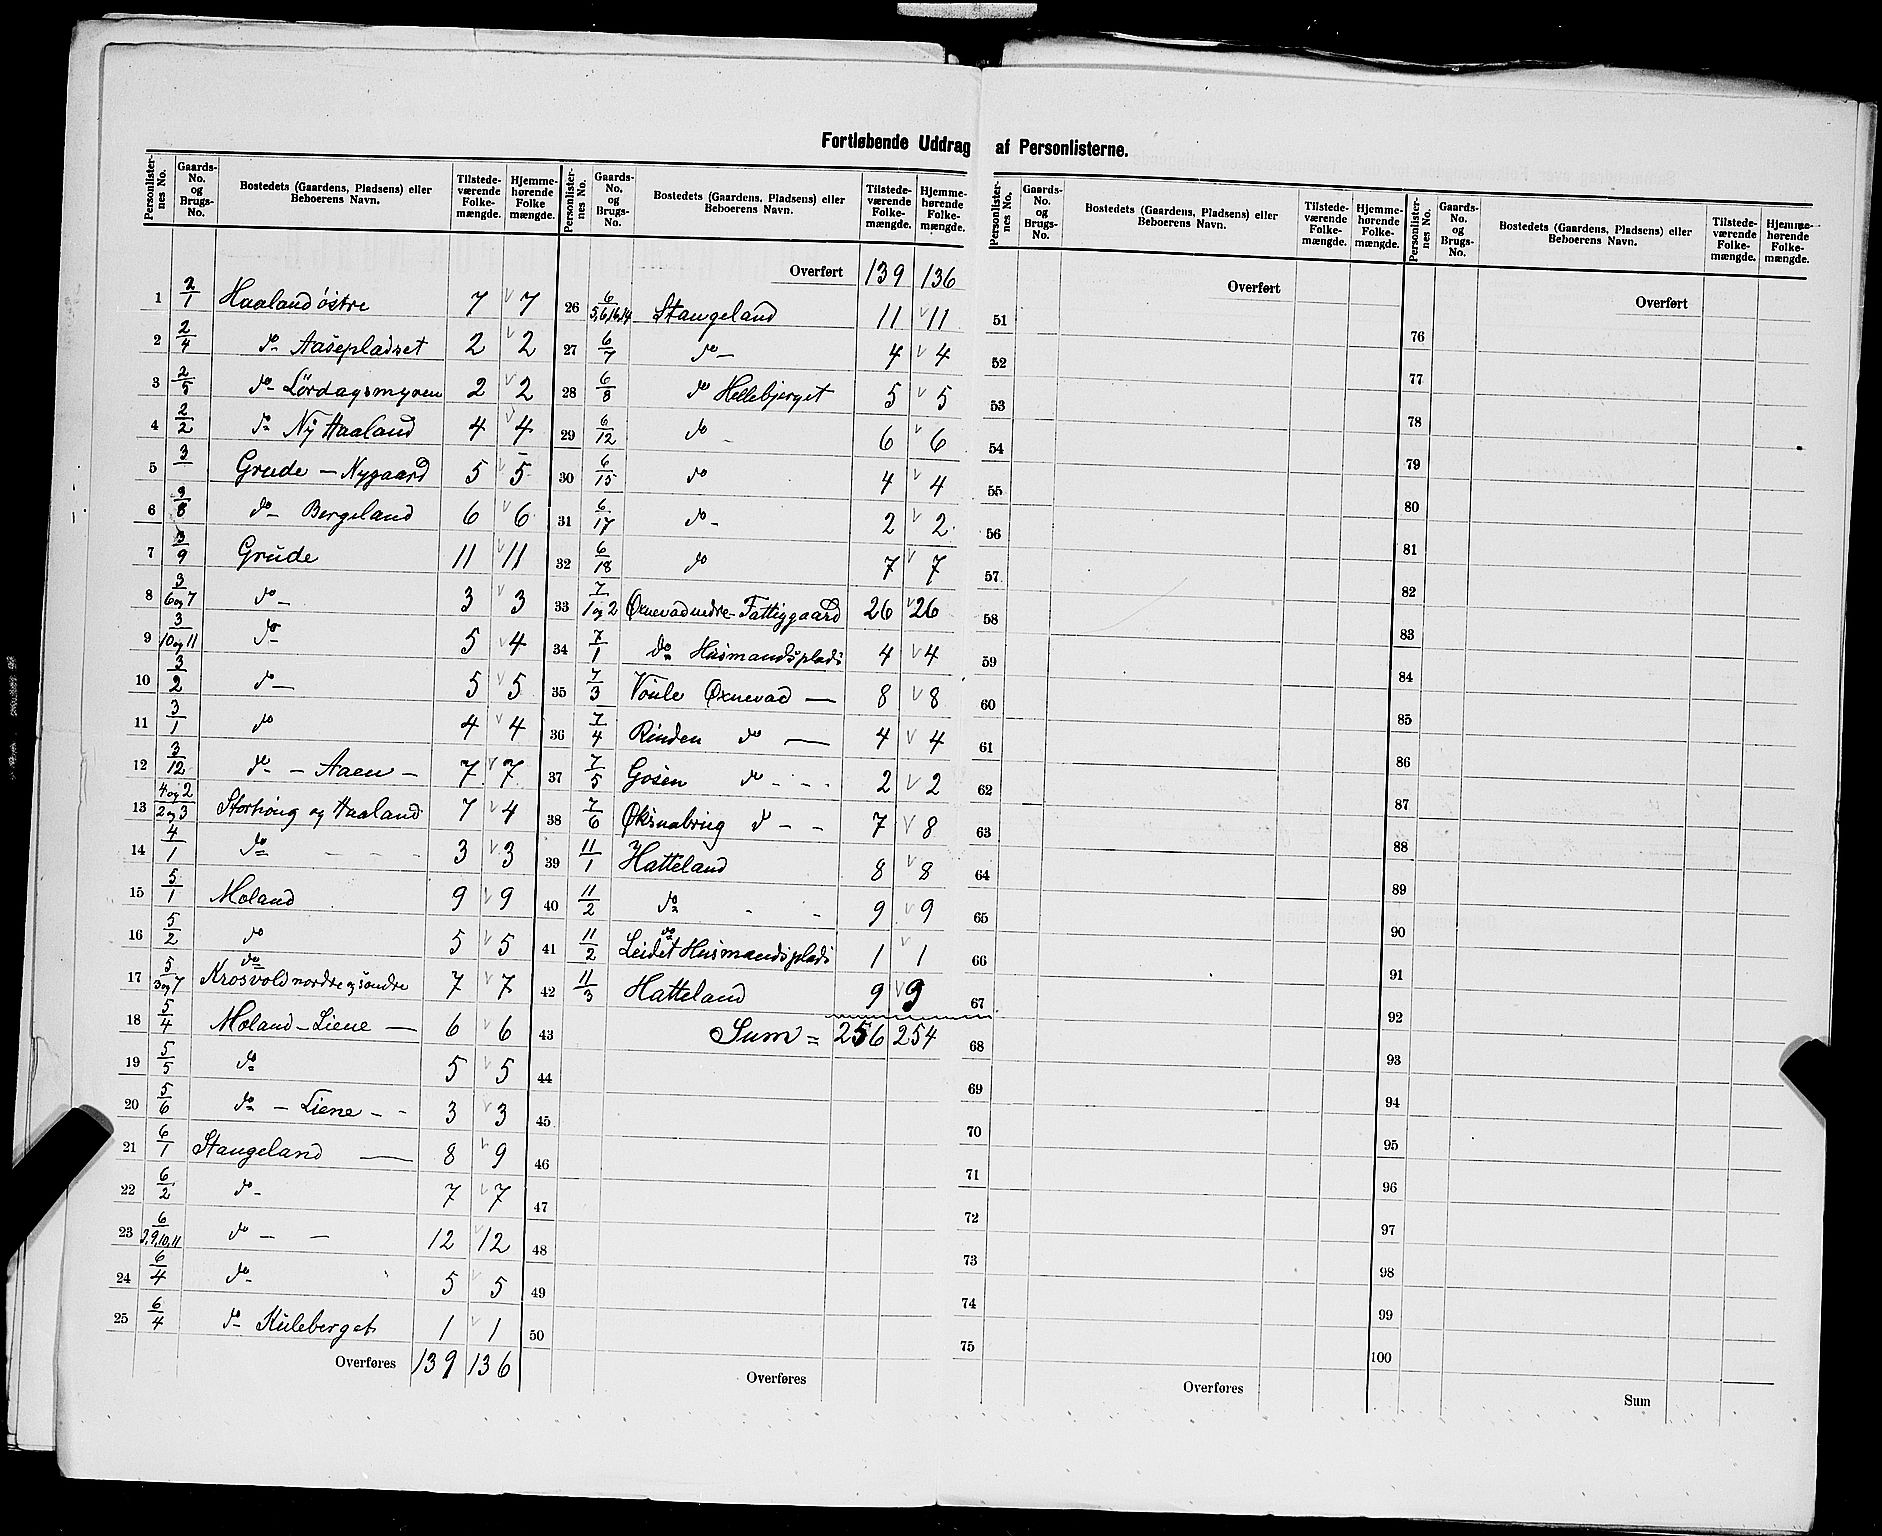 Fortløbende Uddrag af Personlisterne.
Personlister- nes No. | Gaards- No. og Brugs- No. | Bostedets (Gaardens, Pladsens) eller Beboerens Navn. | Tilstede- værende Folke- mængde. | Hjemme- hørende Folke mængde.
1 2/1 Haaland östre 7 7
2 2/4 do Aasepladset 2 2
3 2/5 do Lördagsmyren 2 2
4 2/2 do Ny Haaland 4 4
5 3/ Grude - Nygaard 5 5
6 3/8 do - Bergeland 6 6
7 3/9 Grude 11 11
8 3/6og7 do - 3 3
9 3/10og11 do 5 4
10 3/2 do - 5 5
11 3/1 do 4 4
12 3/12 do - Aaen - 7 7
13 4og2/2og3 Storhoug og Haaland 7 4
14 4/1 do - - - 3 3
15 5/1 Moland 9 9
16 5/2 do 5 5
17 5/3og7 do Krosvold nordre og söndre 7 7
18 5/4 Moland - Liene - 6 6
19 5/5 do 5 5
20 5/6 do - Liene - - 3 3
21 6/1 Stangeland - 8 9
22 6/2 do - 7 7
23 6/3,9,10,11 do - - 12 12
24 6/4 do - 5 5
25 6/4 do Kuleberget 1 1
Overføres 139 136
Personlister- nes No. | Gaards- No. og Brugs- No. | Bostedets (Gaardens, Pladsens) eller Beboerens Navn. | Tilstede- værende Folke- mængde. | Hjemme- hørende Folke- mængde.
Overført 139 136
26 6/5,6,16,14 Stangeland 11 11
27 6/7 do - 4 4
28 6/8 do Hellebjerget 5 5
29 6/12 do - 6 6
30 6/15 do 4 4
31 6/17 do - 2 2
32 6/18 do 7 7
33 7/1og2 Øxnevad nedre - Fattiggaard 26 26
34 7/1 do Husmandsplads 4 4
35 7/3 Voule Øxnevad - 8 8
36 7/4 Rinden do - 4 4
37 7/5 Gosen do - - - 2 2
38 7/6 Øksnabrug do - - 7 8
39 11/1 Hatteland 8 8
40 11/2 do - - 9 9
41 11/2 do Leidet Husmandsplads 1 1
42 11/3 Hatteland 9 9
43 Sum = 256 254
44
45
46
47
48
49
50
Overføres
Personlister- nes No. | Gaards- No. og Brugs- No. | Bostedets (Gaardens, Pladsens) eller Beboerens Navn. | Tilstede- værende Folke- mængde. | Hjemme- hørende Folke- mængde.
Overført
51
52
53
54
55
56
57
58
59
60
61
62
63
64
65
66
67
68
69
70
71
72
73
74
75
Overføres
Personlister- nes No. | Gaards- No. og Brugs- No. | Bostedets (Gaardens, Pladsens) eller Beboerens Navn. | Tilstede- værende Folke- mængde. | Hjemme- hørende Folke- mængde.
Overført
76
77
78
79
80
81
82
83
84
85
86
87
88
89
90
91
92
93
94
95
96
97
98
99
100
Sum